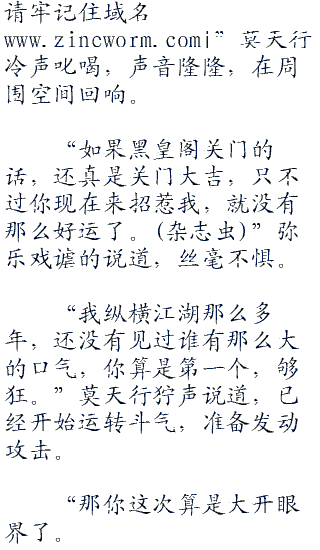 请牢记住域名
www.zincworm.com|”莫天行
冷声叱喝，声音隆隆，在周
围空间回响。
“如果黑皇阁关门的
话，还真是关门大吉，只不
过你现在来招惹我，就没有
那么好运了。(杂志虫)”弥
乐戏谑的说道，丝毫不惧。
“我纵横江湖那么多
年，还没有见过谁有那么大
的口气，你算是第一个，够
狂。”莫天行狞声说道，已
经开始运转斗气，准备发动
攻击。
“那你这次算是大开眼
界了。